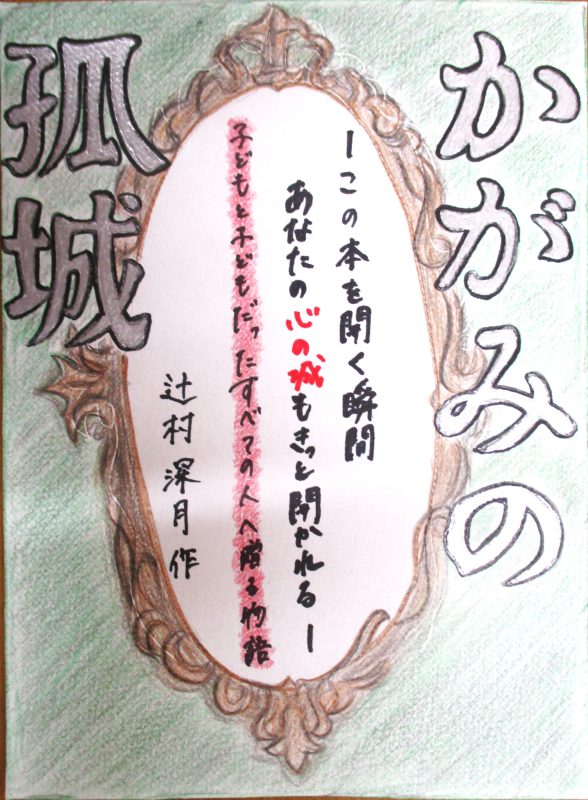 かがみの
孤城
ーこの本を開く瞬間
あなたの心の城もきっと開かれるー
子どもと子どもだったすべての人へ贈る物語
辻村深月作